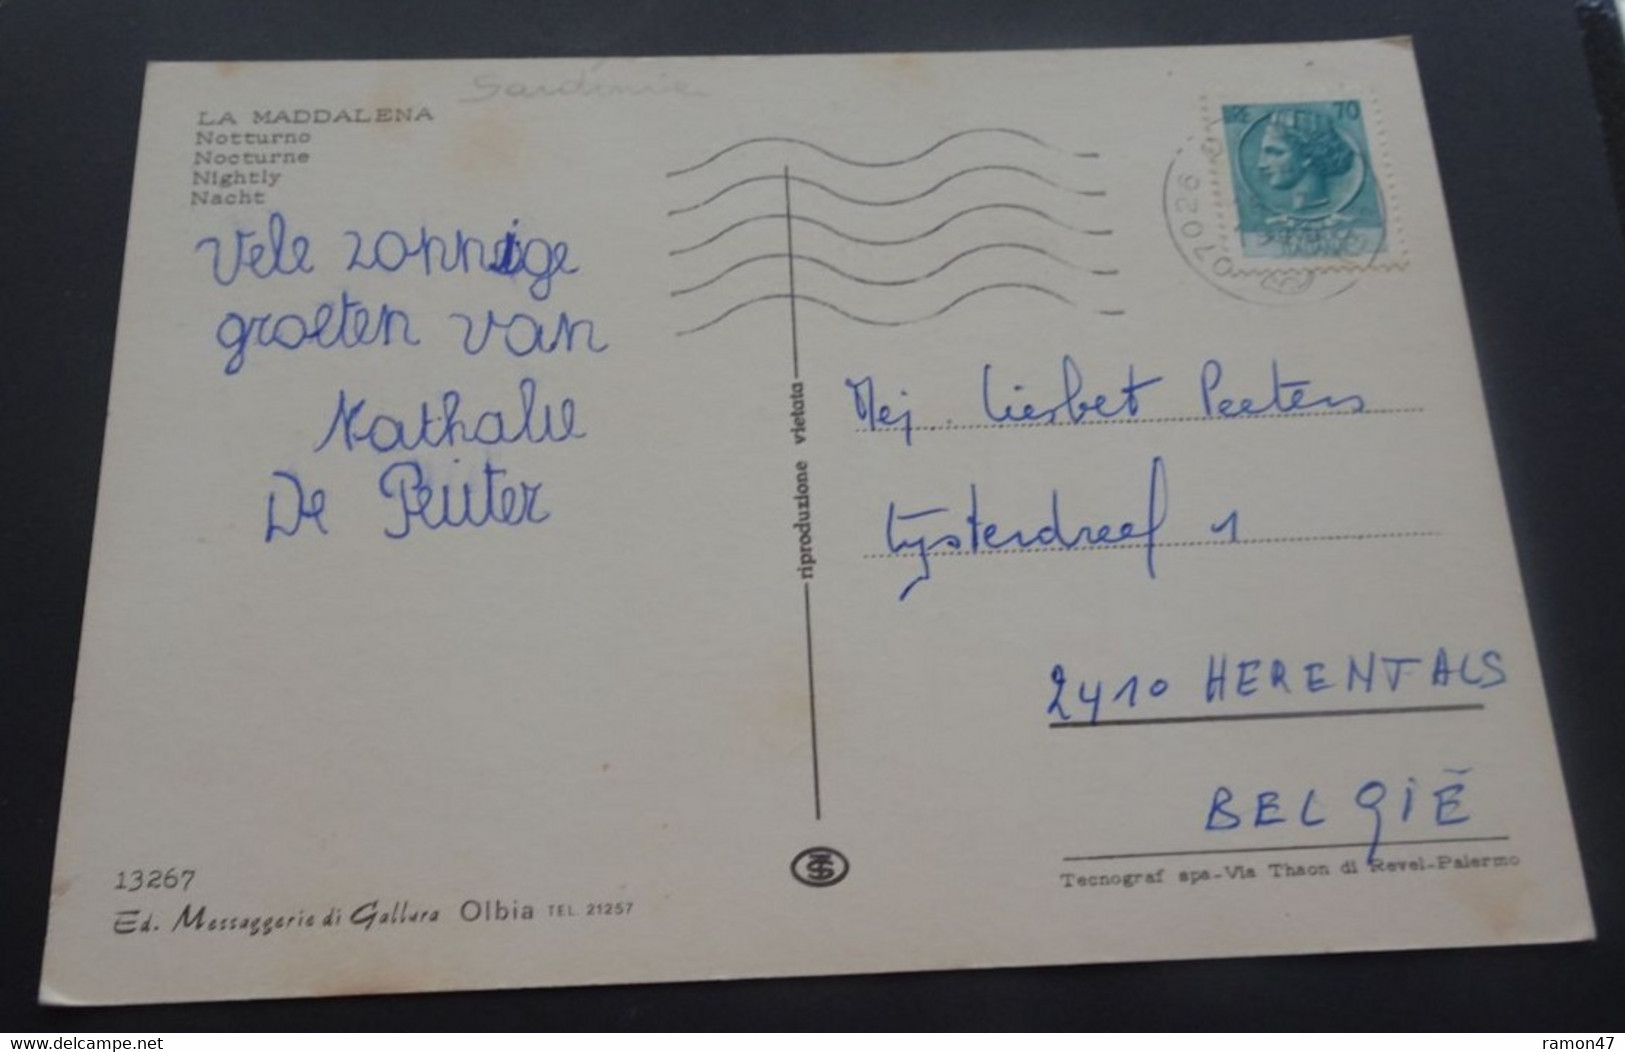 Sardinie
LA MADDALENA
Notturno
Nocturne
Nightly
Nacht
Vele zonnige
groeten van
Nathalie
De Ruiter
13267
Ed. Messaggerie di Gallura Olbia TEL. 21257
riproduzione vietata
LIRE 70
07026
Mej. Liesbet Peeters
Lijsterdreef 1
2410 HERENTALS
BELGIË
Tecnograf spa-Via Thaon di Revel-Palermo
www.delcampe.net
ramon47